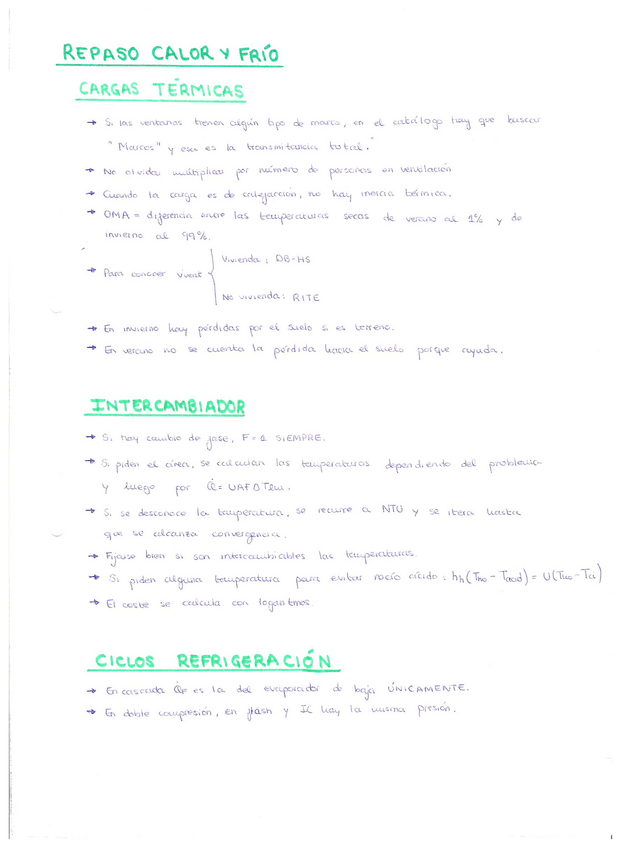 REPASO CALOR Y FRÍO
CARGAS TÉRMICAS
→ Si las ventanas tienen algún tipo de marco, en el catálogo hay que buscar
"Marcos" y esa es la transmitancia total.
→ No olvidar multiplicar por número de personas en ventilación
→ Cuando la carga es de calefacción, no hay inercia térmica.
→ OMA = diferencia entre las temperaturas secas de verano al 1% y de
invierno al 99%.
→ Para conocer Vvent
Vivienda: DB-HS
No vivienda: RITE
→ En invierno hay pérdidas por el suelo si es terreno.
→ En verano no se cuenta la pérdida hacia el suelo porque ayuda.
INTERCAMBIADOR
→ Si hay cambio de fase, F=1 SIEMPRE.
→ Si piden el área, se calculan las temperaturas dependiendo del problema
y luego por Q̇ = UAFDTlm.
→ Si se desconoce la temperatura, se recurre a NTU y se itera hasta
que se alcanza convergencia.
→ Fijarse bien si son intercambiables las temperaturas.
→ Si piden alguna temperatura para evitar rocío ácido: hh(Tho - Tacid) = U(Tho - Tci)
→ El coste se calcula con logaritmos.
CICLOS REFRIGERACIÓN
→ En cascada Q̇F es la del evaporador de baja ÚNICAMENTE.
→ En doble compresión, en flash y IC hay la misma presión.